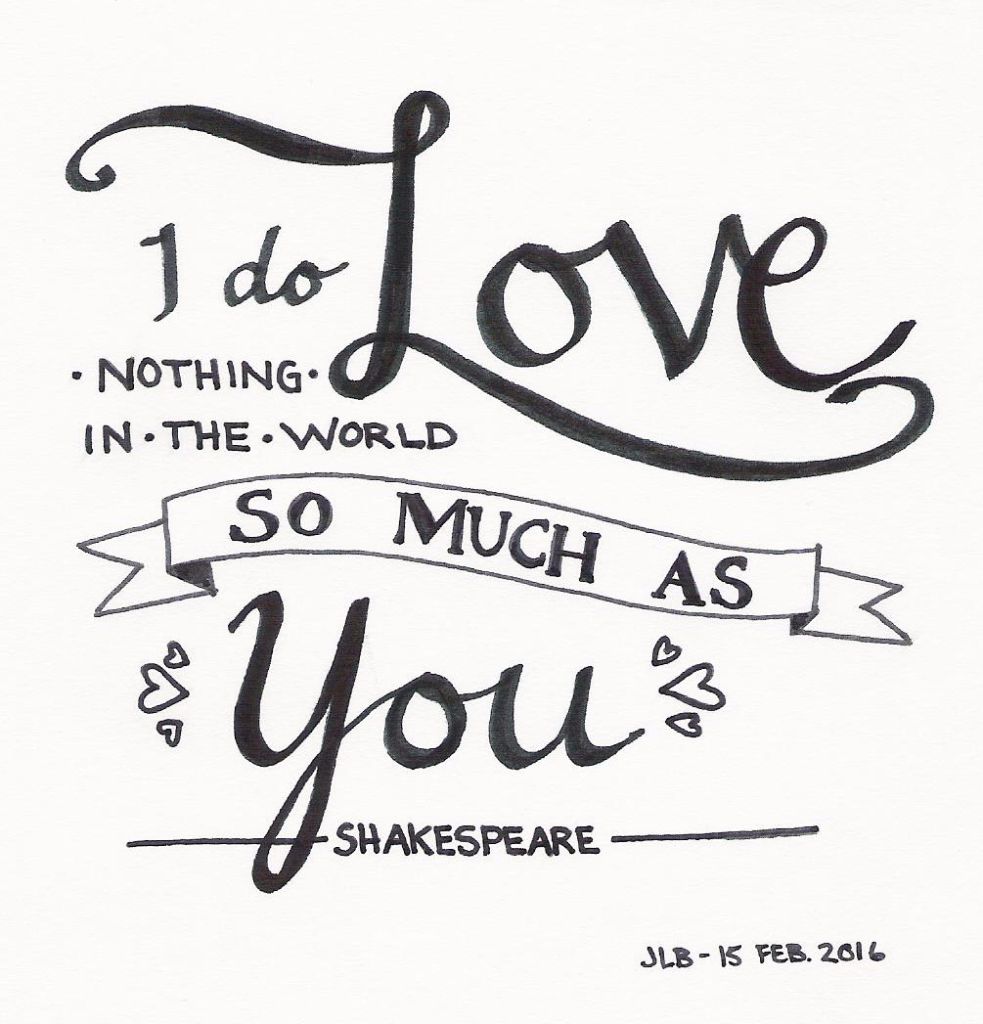 I do Love
• NOTHING •
IN • THE • WORLD
SO MUCH AS
You
SHAKESPEARE
JLB - 15 FEB. 2016